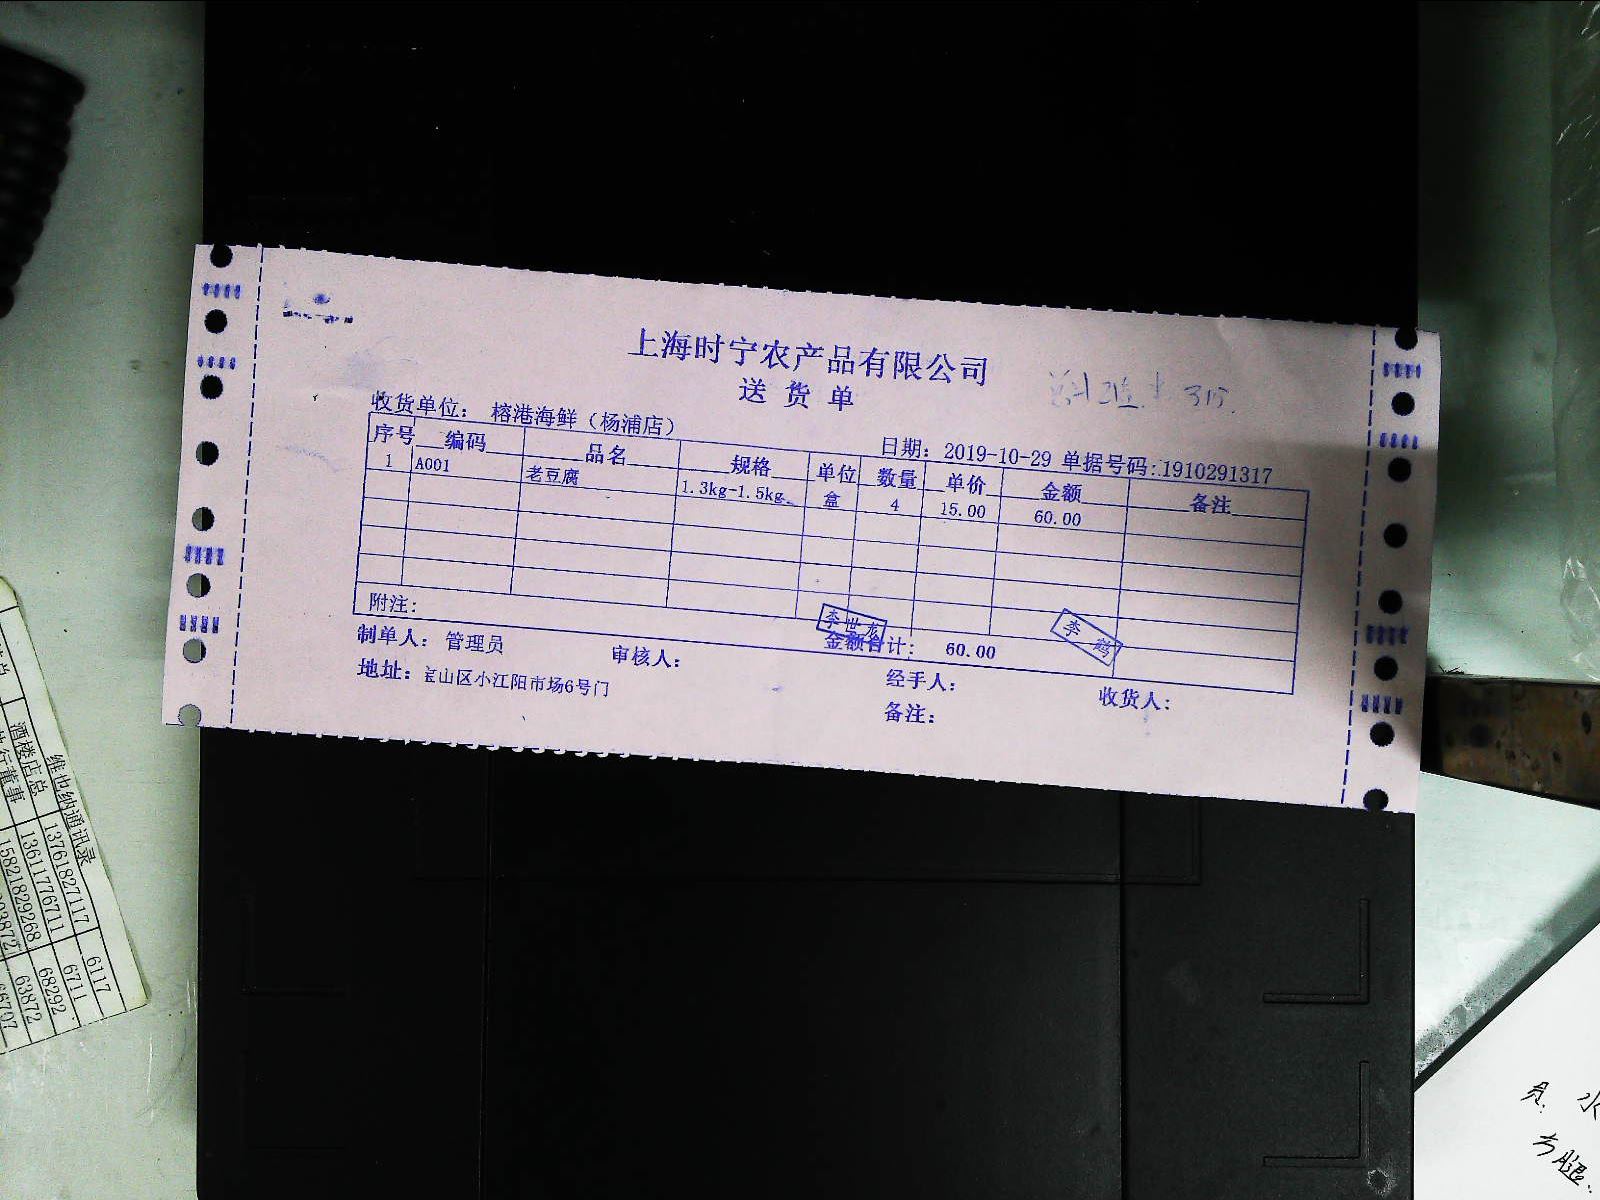 上海时宁农产品有限公司
送货单
收货单位: 榕港海鲜（杨浦店）
日期: 2019-10-29 单据号码: 1910291317
序号 编码 品名 规格 单位 数量 单价 金额 备注
1 A001 老豆腐 1.3kg-1.5kg 盒 4 15.00 60.00
附注:
李世龙
李鹤
金额合计: 60.00
制单人: 管理员
审核人:
经手人:
收货人:
地址: 宝山区小江阳市场6号门
备注:
维也纳通讯录
酒楼店总 13761827117 6117
执行董事 13611776711 6711
15821829268 68292
63872